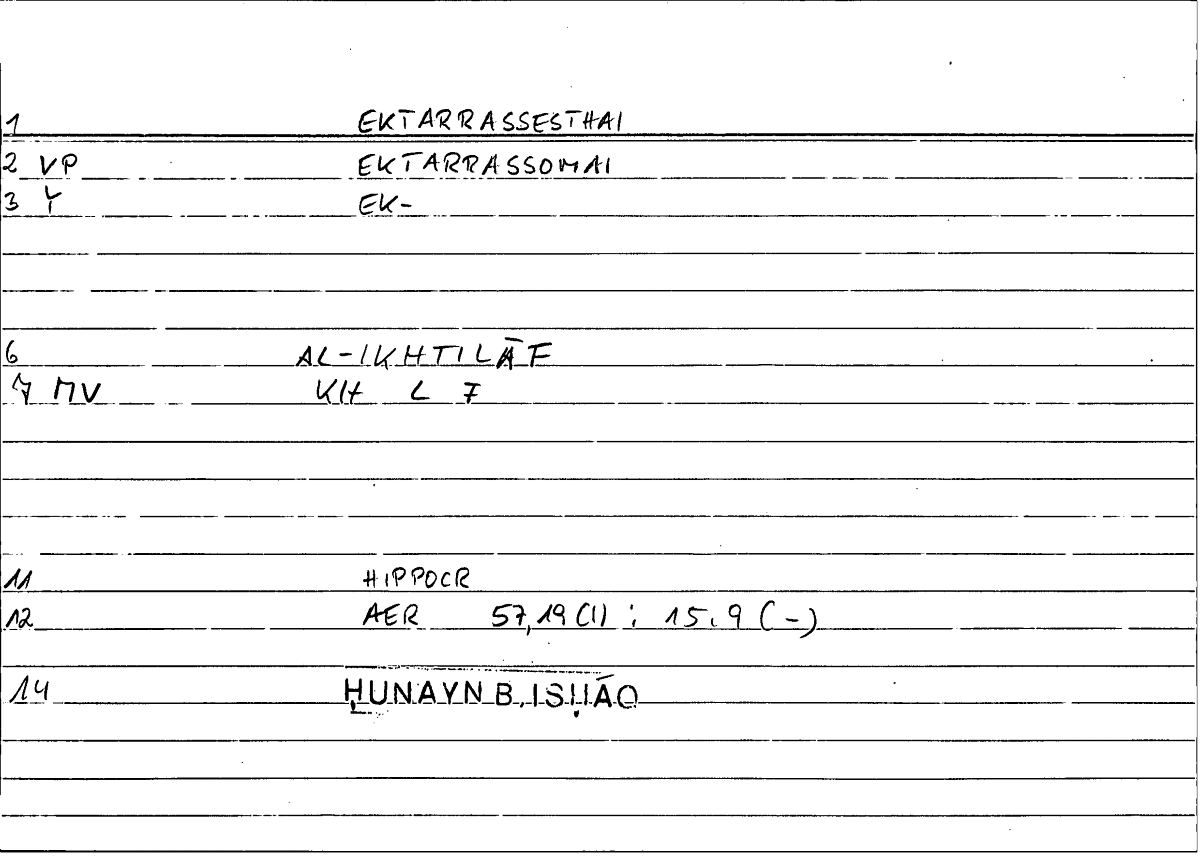 1 EKTARRASSESTHAI
2 VP EKTARRASSOMAI
3 Y EK-
6 AL-IKHTILĀF
7 MV KH L F
11 HIPPOCR
12 AER 57,19 (1) : 15.9 (-)
14 ḤUNAYN B. ISḤĀQ